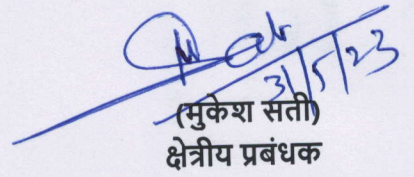 3/5/23
(मुकेश सती)
क्षेत्रीय प्रबंधक